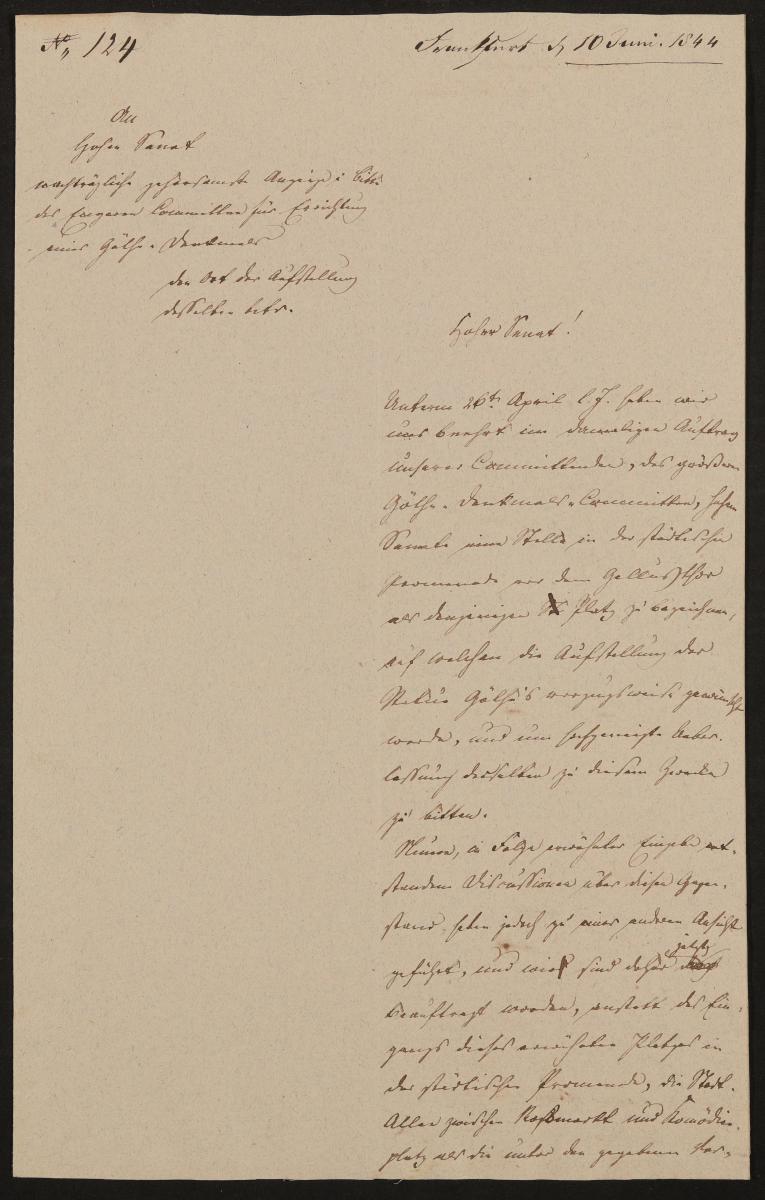 No 124
Frankfurt d 10 Juni. 1844
An
Hohen Senat
nachträgliche gehorsamste Anzeige u Bitte
des Engeren Committee für Errichtung
eines Göthe-Denkmals
den Ort der Aufstellung
desselben betr.
Hoher Senat!
Unterm 26t. April l. J. haben wir
uns beehrt im damaligen Auftrag
unserer Committenden, des größeren
Göthe-Denkmals-Committee, hohem
Senate eine Stelle in der städtischen
Promenade vor dem Gallusthor
als denjenigen Platz zu bezeichnen,
auf welchen die Aufstellung der
Statue Göthe's vorzugsweise gewünscht
werde, und um hochgeneigte Ueber-
lassung desselben zu diesem Zwecke
zu bitten.
Neuere, in Folge erwähnter Eingabe ent-
standene Discussionen über diesen Gegen-
stand haben jedoch zu einer anderen Ansicht
geführt, und wir sind daher jetzt
beauftragt worden, anstatt des Ein-
gangs dieses erwähnten Platzes in
der städtischen Promenade, die Stadt-
Allee zwischen Roßmarkt und Komödien-
platz als die unter den gegebenen Ver-